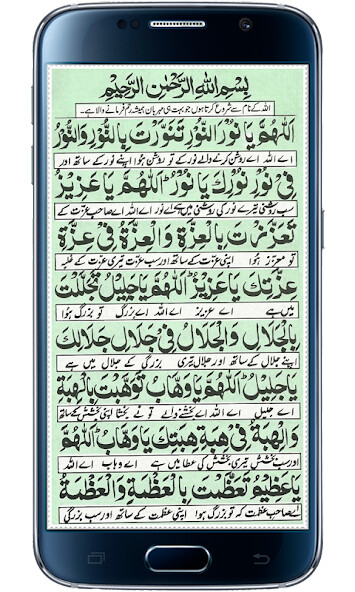 بِسْمِ اللهِ الرَّحْمٰنِ الرَّحِيْمِ
اللہ کے نام سے شروع کرتا ہوں جو بہت ہی مہربان ہمیشہ رحم فرمانے والا ہے۔
اَللّٰهُمَّ يَا نُوْرَ النُّوْرِ تَنَوَّرْتَ بِالنُّوْرِ وَالنُّوْرُ
اے اللہ اے روشن کرنے والے نور کے تو روشن ہوا اپنے نور کے ساتھ اور
فِيْ نُوْرِ نُوْرِكَ يَا نُوْرُ اَللّٰهُمَّ يَا عَزِيْزُ
سب روشنی تیرے نور کی روشنی میں ہے اے نور اے اللہ اے صاحب عزت کے
تَعَزَّزْتَ بِالْعِزَّةِ وَالْعِزَّةُ فِيْ عِزَّةِ
تو معزز ہوا اپنی عزت کے ساتھ اور سب عزت تیری عزت کے غلبہ
عِزَّتِكَ يَا عَزِيْزُ اَللّٰهُمَّ يَا جَلِيْلُ تَجَلَّلْتَ
میں ہے اے عزیز اے اللہ اے بزرگ تو بزرگ ہوا
بِالْجَلَالِ وَالْجَلَالُ فِيْ جَلَالِ جَلَالِكَ
اپنے جلال کے ساتھ اور جلال تیری بزرگی کے جلال میں ہے
يَا جَلِيْلُ اَللّٰهُمَّ يَا وَهَّابُ تَوَهَّبْتَ بِالْهِبَةِ
اے جلیل اے اللہ اے بخشنے والے تو نے بخشا اپنی بخشش کے ساتھ
وَالْهِبَةُ فِيْ هِبَةِ هِبَتِكَ يَا وَهَّابُ اَللّٰهُمَّ
اور سب بخشش تیری بخشش کی عطا میں ہے اے وہاب اے اللہ
يَا عَظِيْمُ تَعَظَّمْتَ بِالْعَظَمَةِ وَالْعَظَمَةُ
اے صاحب عظمت کہ تو بزرگ ہوا اپنی عظمت کے ساتھ اور سب بزرگی